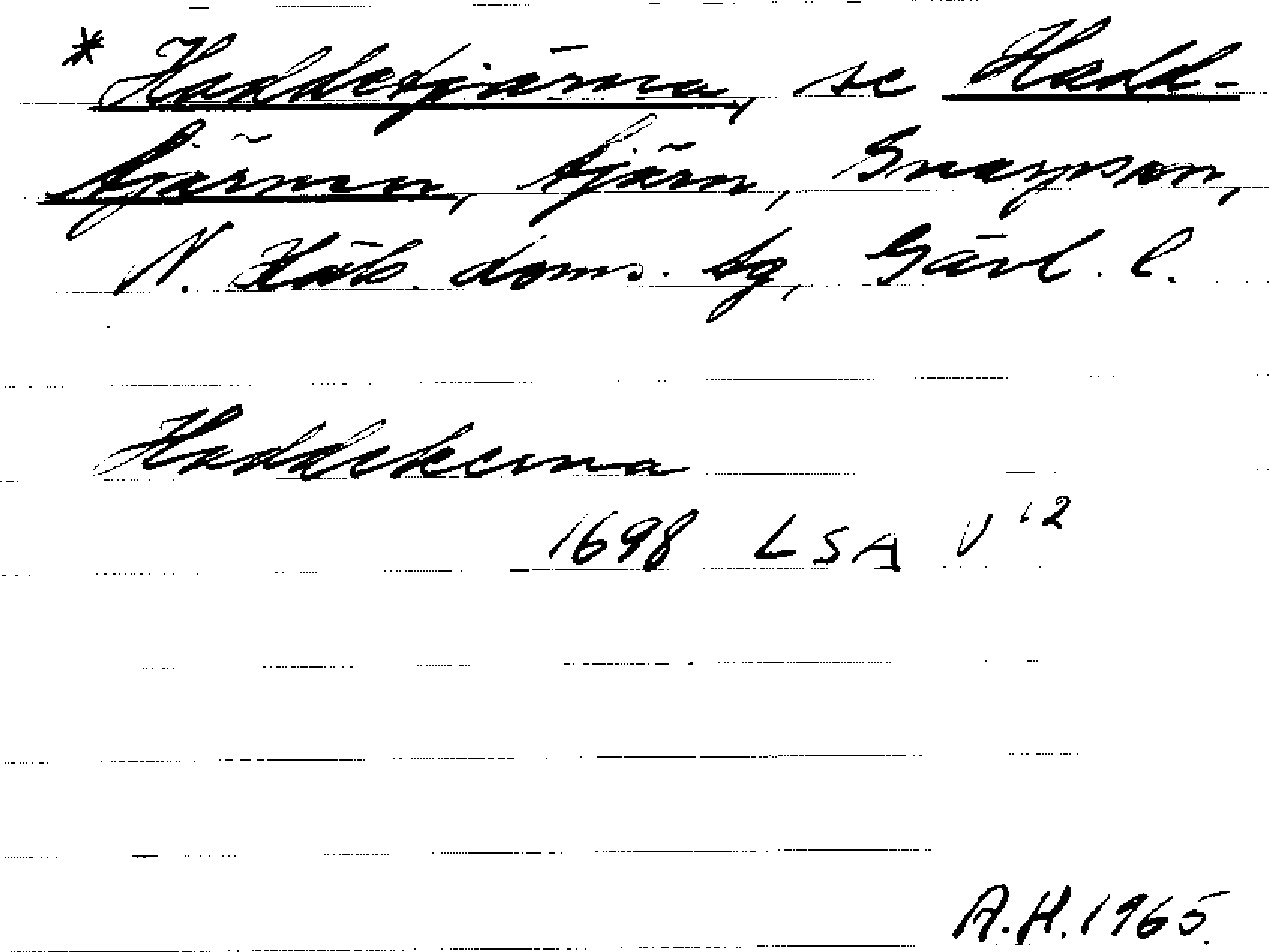 * Haddetjärna, se Hadd-
tjärnen, tjärn, Gnarps sn,
N. Häls. doms. tg, Gävl. l.
Haddekerna
1698 LSA V 12
A.H. 1965.